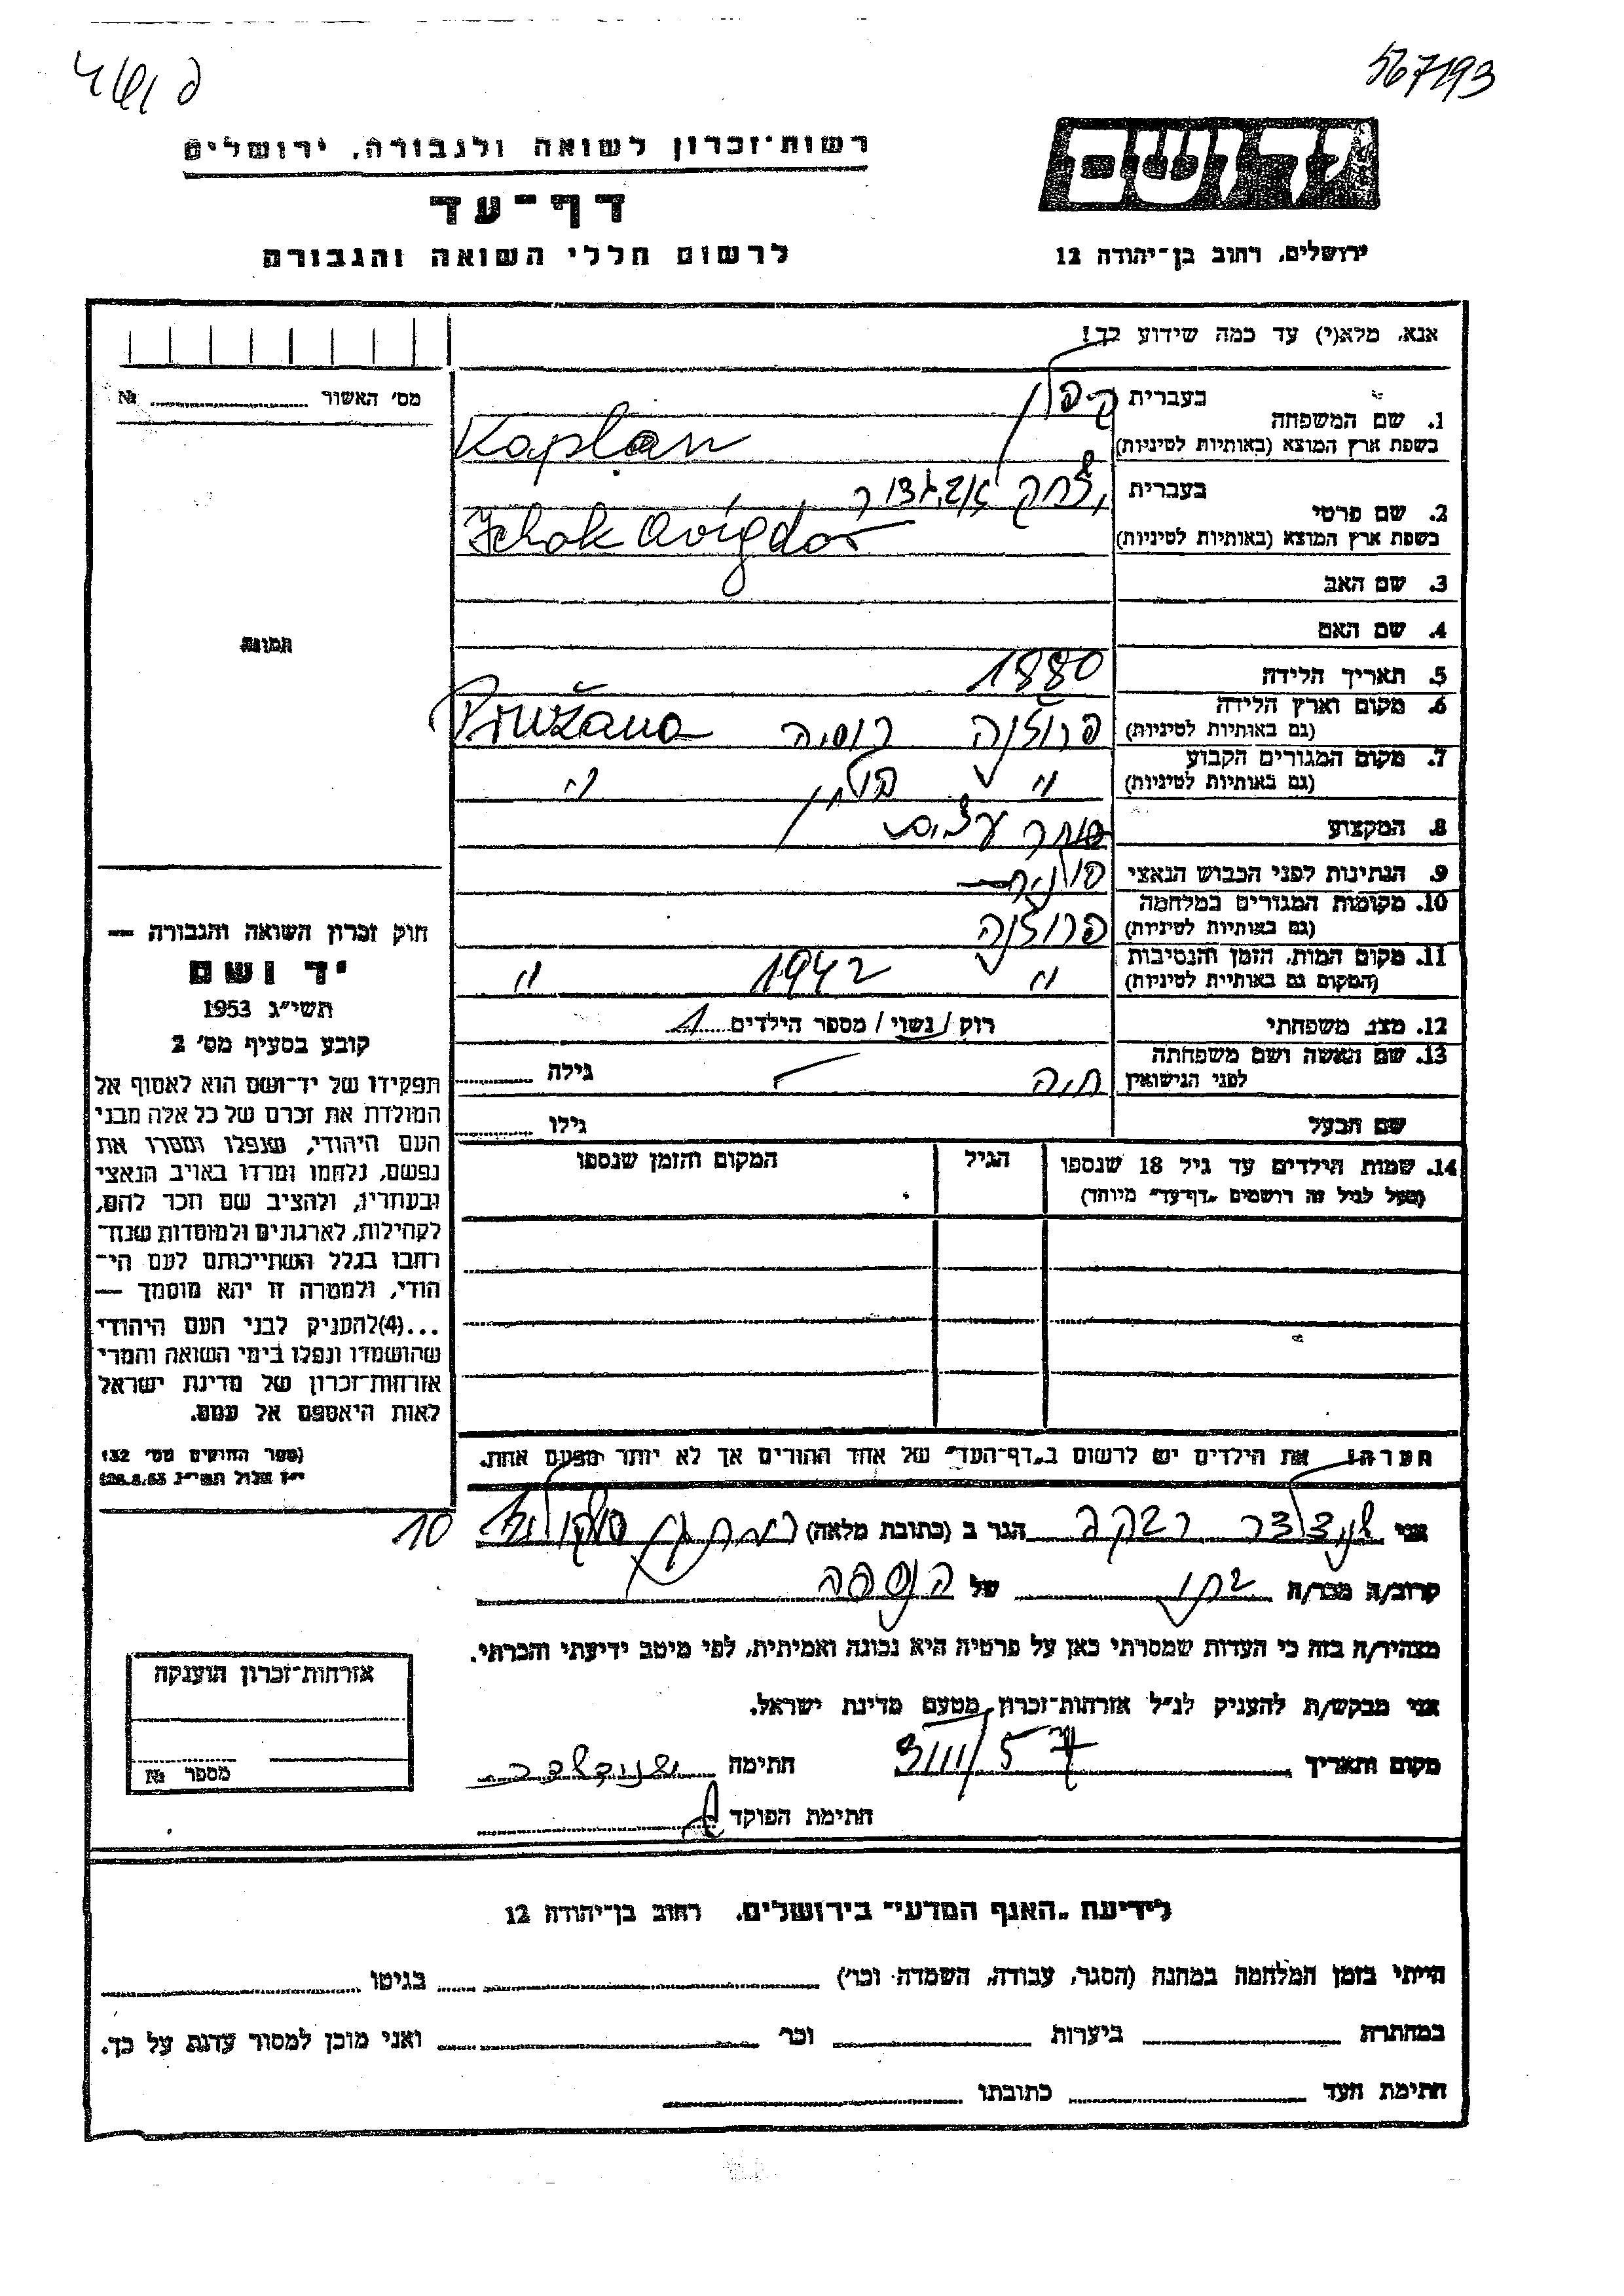 567193
רשות־זכרון לשואה ולגבורה, ירושלים
דף־עד
לרשום חללי השואה והגבורה
ידושם
ירושלים, רחוב בן־יהודה 12
אנא, מלא(י) עד כמה שידוע לך!
מס׳ האשור № 
1. שם המשפחה
בעברית קפלן
בשפת ארץ המוצא (באותיות לטיניות) Kaplan
2. שם פרטי
בעברית יצחק אביגדור
בשפת ארץ המוצא (באותיות לטיניות) Ichak Avigdor
3. שם האב
4. שם האם
תמונה
5. תאריך הלידה 1880
6. מקום וארץ הלידה (גם באותיות לטיניות) פרוז'נה רוסיה Pružana
7. מקום המגורים הקבוע (גם באותיות לטיניות) " פולין "
8. המקצוע סוחר עצים
9. הנתינות לפני הכבוש הנאצי פולנית
10. מקומות המגורים במלחמה (גם באותיות לטיניות) פרוז'נה
11. מקום המות, הזמן והנסיבות (המקום גם באותיית לטיניות) " 1942 "
12. מצב משפחתי רוק/נשוי/מספר הילדים 1
13. שם האשה ושם משפחתה לפני הנישואין חיה גילה
שם הבעל גילו
14. שמות הילדים עד גיל 18 שנספו הגיל המקום והזמן שנספו
(מעל לגיל זה רושמים „דף־עד״ מיוחד)
חוק זכרון השואה והגבורה —
יד ושם
תשי״ג 1953
קובע בסעיף מס׳ 2
תפקידו של יד־ושם הוא לאסוף אל
המולדת את זכרם של כל אלה מבני
העם היהודי, שנפלו ומסרו את
נפשם, נלחמו ומרדו באויב הנאצי
ובעוזריו, ולהציב שם וזכר להם,
לקהילות, לארגונים ולמוסדות שנח־
רבו בגלל השתייכותם לעם הי־
הודי, ולמטרה זו יהא מוסמך —
...(4)להעניק לבני העם היהודי
שהושמדו ונפלו בימי השואה והמרי
אזרחות־זכרון של מדינת ישראל
לאות היאספם אל עמם.
(ספר החוקים מס׳ 132
י״ז אלול תשי״ג 28.8.53)
הערה! את הילדים יש לרשום ב„דף־העד״ של אחד ההורים אך לא יותר מפעם אחת.
אני שנצלדר רבקה הגר ב (כתובת מלאה) רמת גן 10
קרוב/ה מכר/ה בתו של הנספה
מצהיר/ה בזה כי העדות שמסרתי כאן על פרטיה היא נכונה ואמיתית, לפי מיטב ידיעתי והכרתי.
אני מבקש/ת להעניק לנ״ל אזרחות־זכרון מטעם מדינת ישראל.
מקום ותאריך 3/III/57 חתימה
חתימת הפוקד
אזרחות־זכרון הוענקה
מספר №
לידיעת „האגף המדעי״ בירושלים, רחוב בן־יהודה 12
הייתי בזמן המלחמה במחנה (הסגר, עבודה, השמדה וכו׳) בגיטו
במחתרת ביערות וכו׳ ואני מוכן למסור עדות על כך.
חתימת העד כתובתו